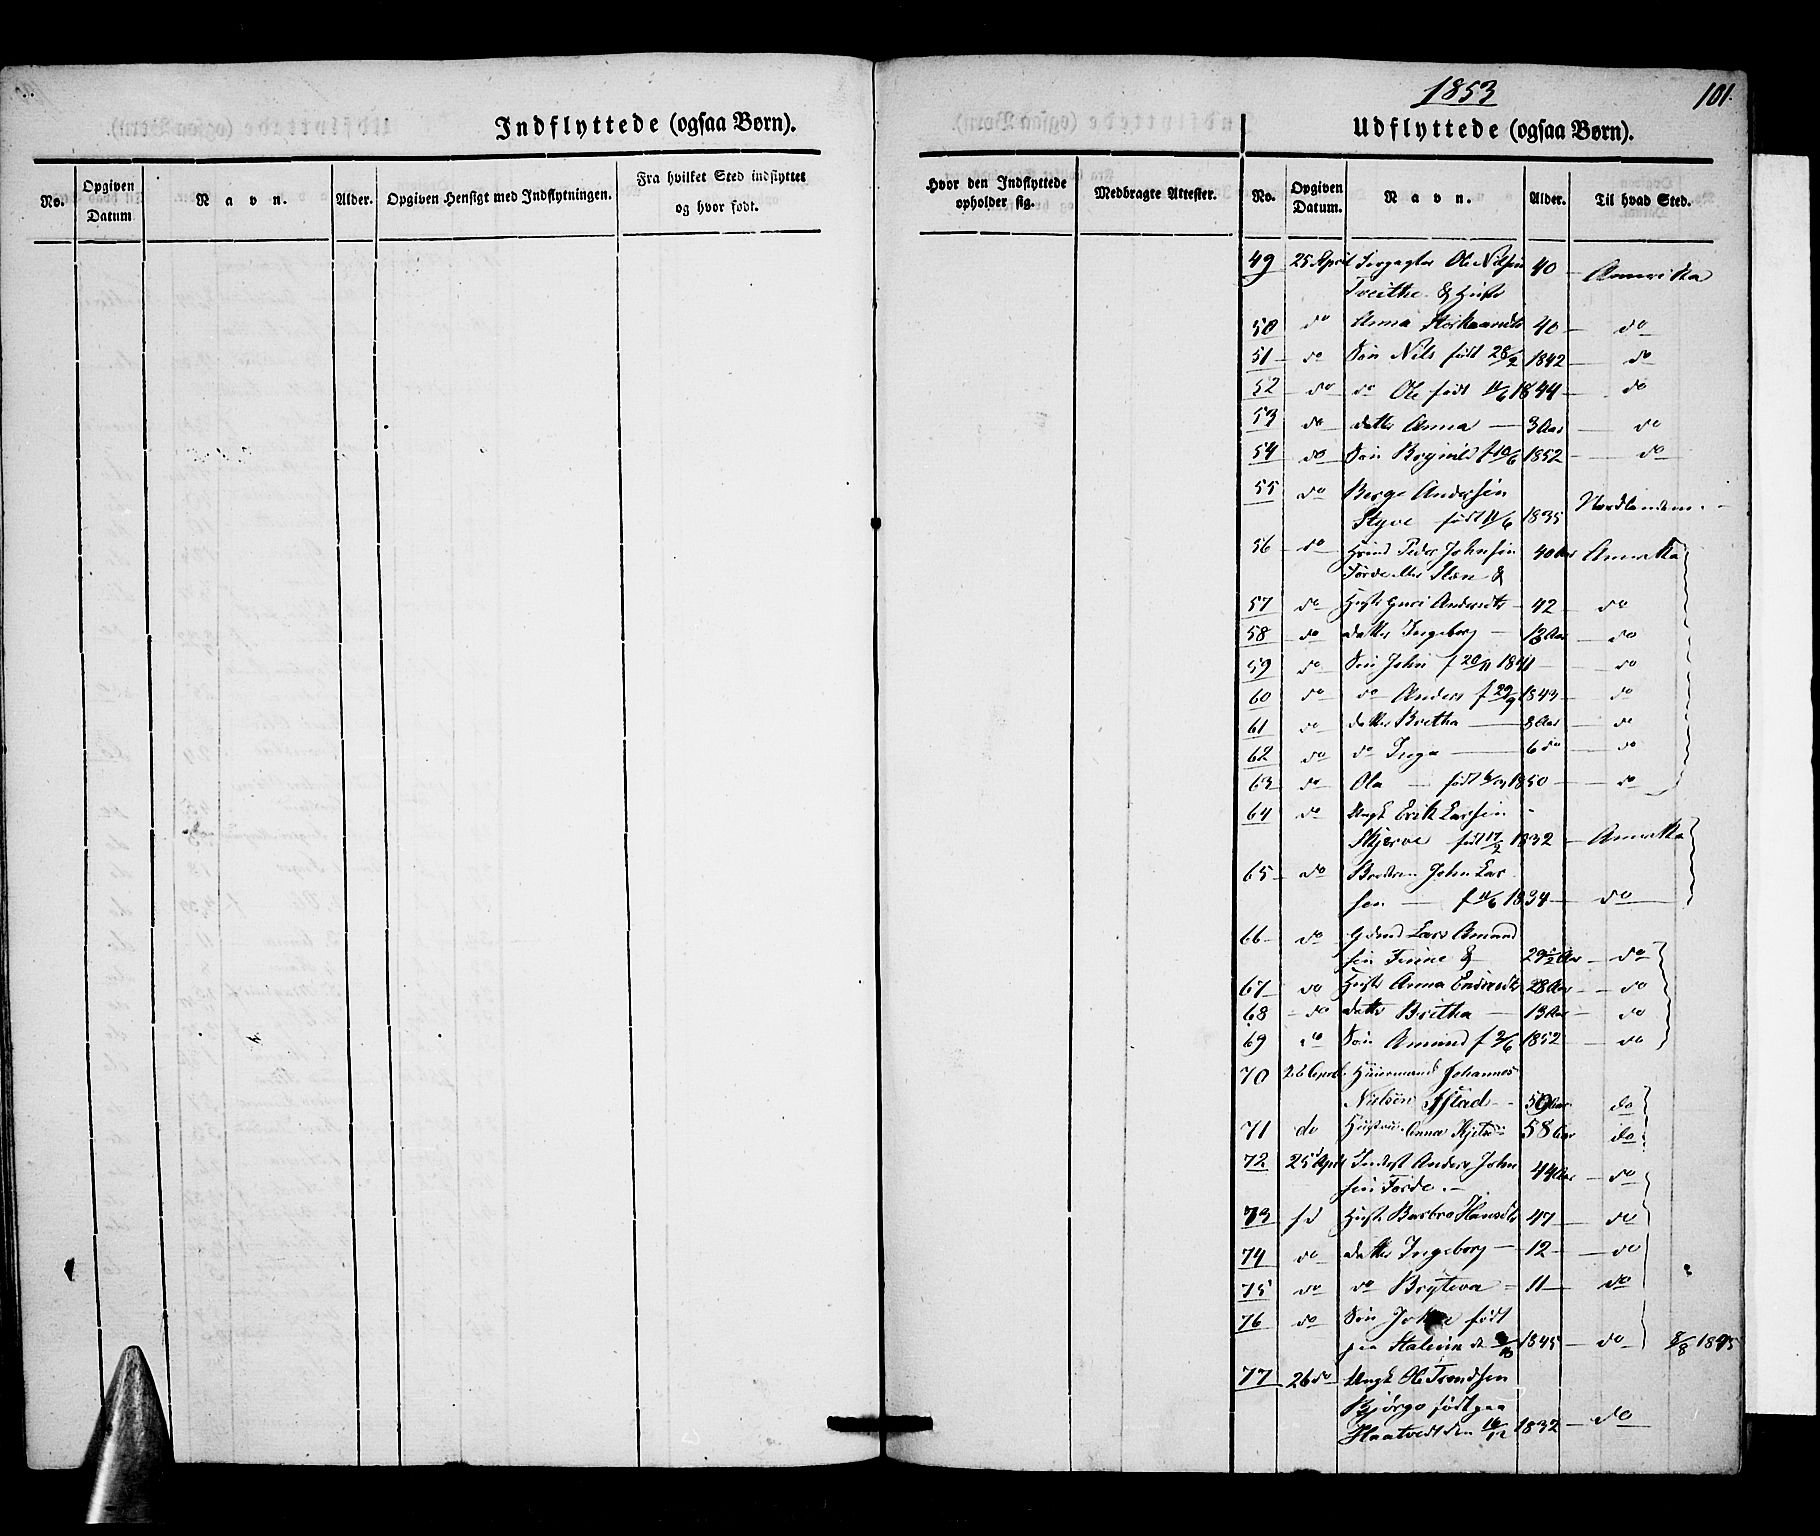 1853
101.
Indflyttede (ogsaa Børn).
Udflyttede (ogsaa Børn).
No. Opgiven Datum. Navn. Alder. Opgiven Hensigt med Indflytningen. Fra hvilket Sted indflyttet og hvor født. Hvor den Indflyttede opholder sig. Medbragte Attester. No. Opgiven Datum. Navn. Alder. Til hvad Sted.
49 25 April Ole Nilsen 40 Amerika
Tveithe & Hustr
50 do Anna 40 do
51 do Søn Nils født 28/2 1842 do
52 do do Ole født 11/6 1844 do
53 do datter Anna 3 Aar do
54 do Søn f 10/6 1852 do
55 do Børge Andersen
Styve født 11/6 1835 Nordlandene
56 do Peder Johnsen 40 Aar Amerika
Førde eller &
57 do Hustr Guri Andersdtr 42 do
58 do datter Ingeborg 13 Aar do
59 do Søn John f 20/11 1841 do
60 do do Anders f 29/9 1843 do
61 do datter Bretha 8 Aar do
62 do do Inga 6 do do
63 do Ola født 1850 do
64 do Ungk Erik Larsen
Skjerve født 17/2 1832 Amerika
65 do Brodren John Lar
sen f 11/6 1834 do
66 do Lars Amund
sen Finne & 29 1/2 Aar do
67 do Hustr Anna Endersdtr 28 Aar do
68 do datter Britha 13 Aar do
69 do Søn Amund f 2/6 1852 do
70 26 April Huusmand Johannes
Nielsen 59 Aar do
71 do Hustrue Anna 58 Aar do
72 25 April Inderst Anders John
sen Førde 44 Aar do
73 Hustr Barbro Hansdtr 47 do
74 do datter Ingeborg 12 do
75 do do Bryteva 11 do
76 do Søn født
paa 1845 do 8/8 1845
77 26 do Ungk Ole Trondsen
Bjørgo født paa
Haatvedt den 16/12 1832 do